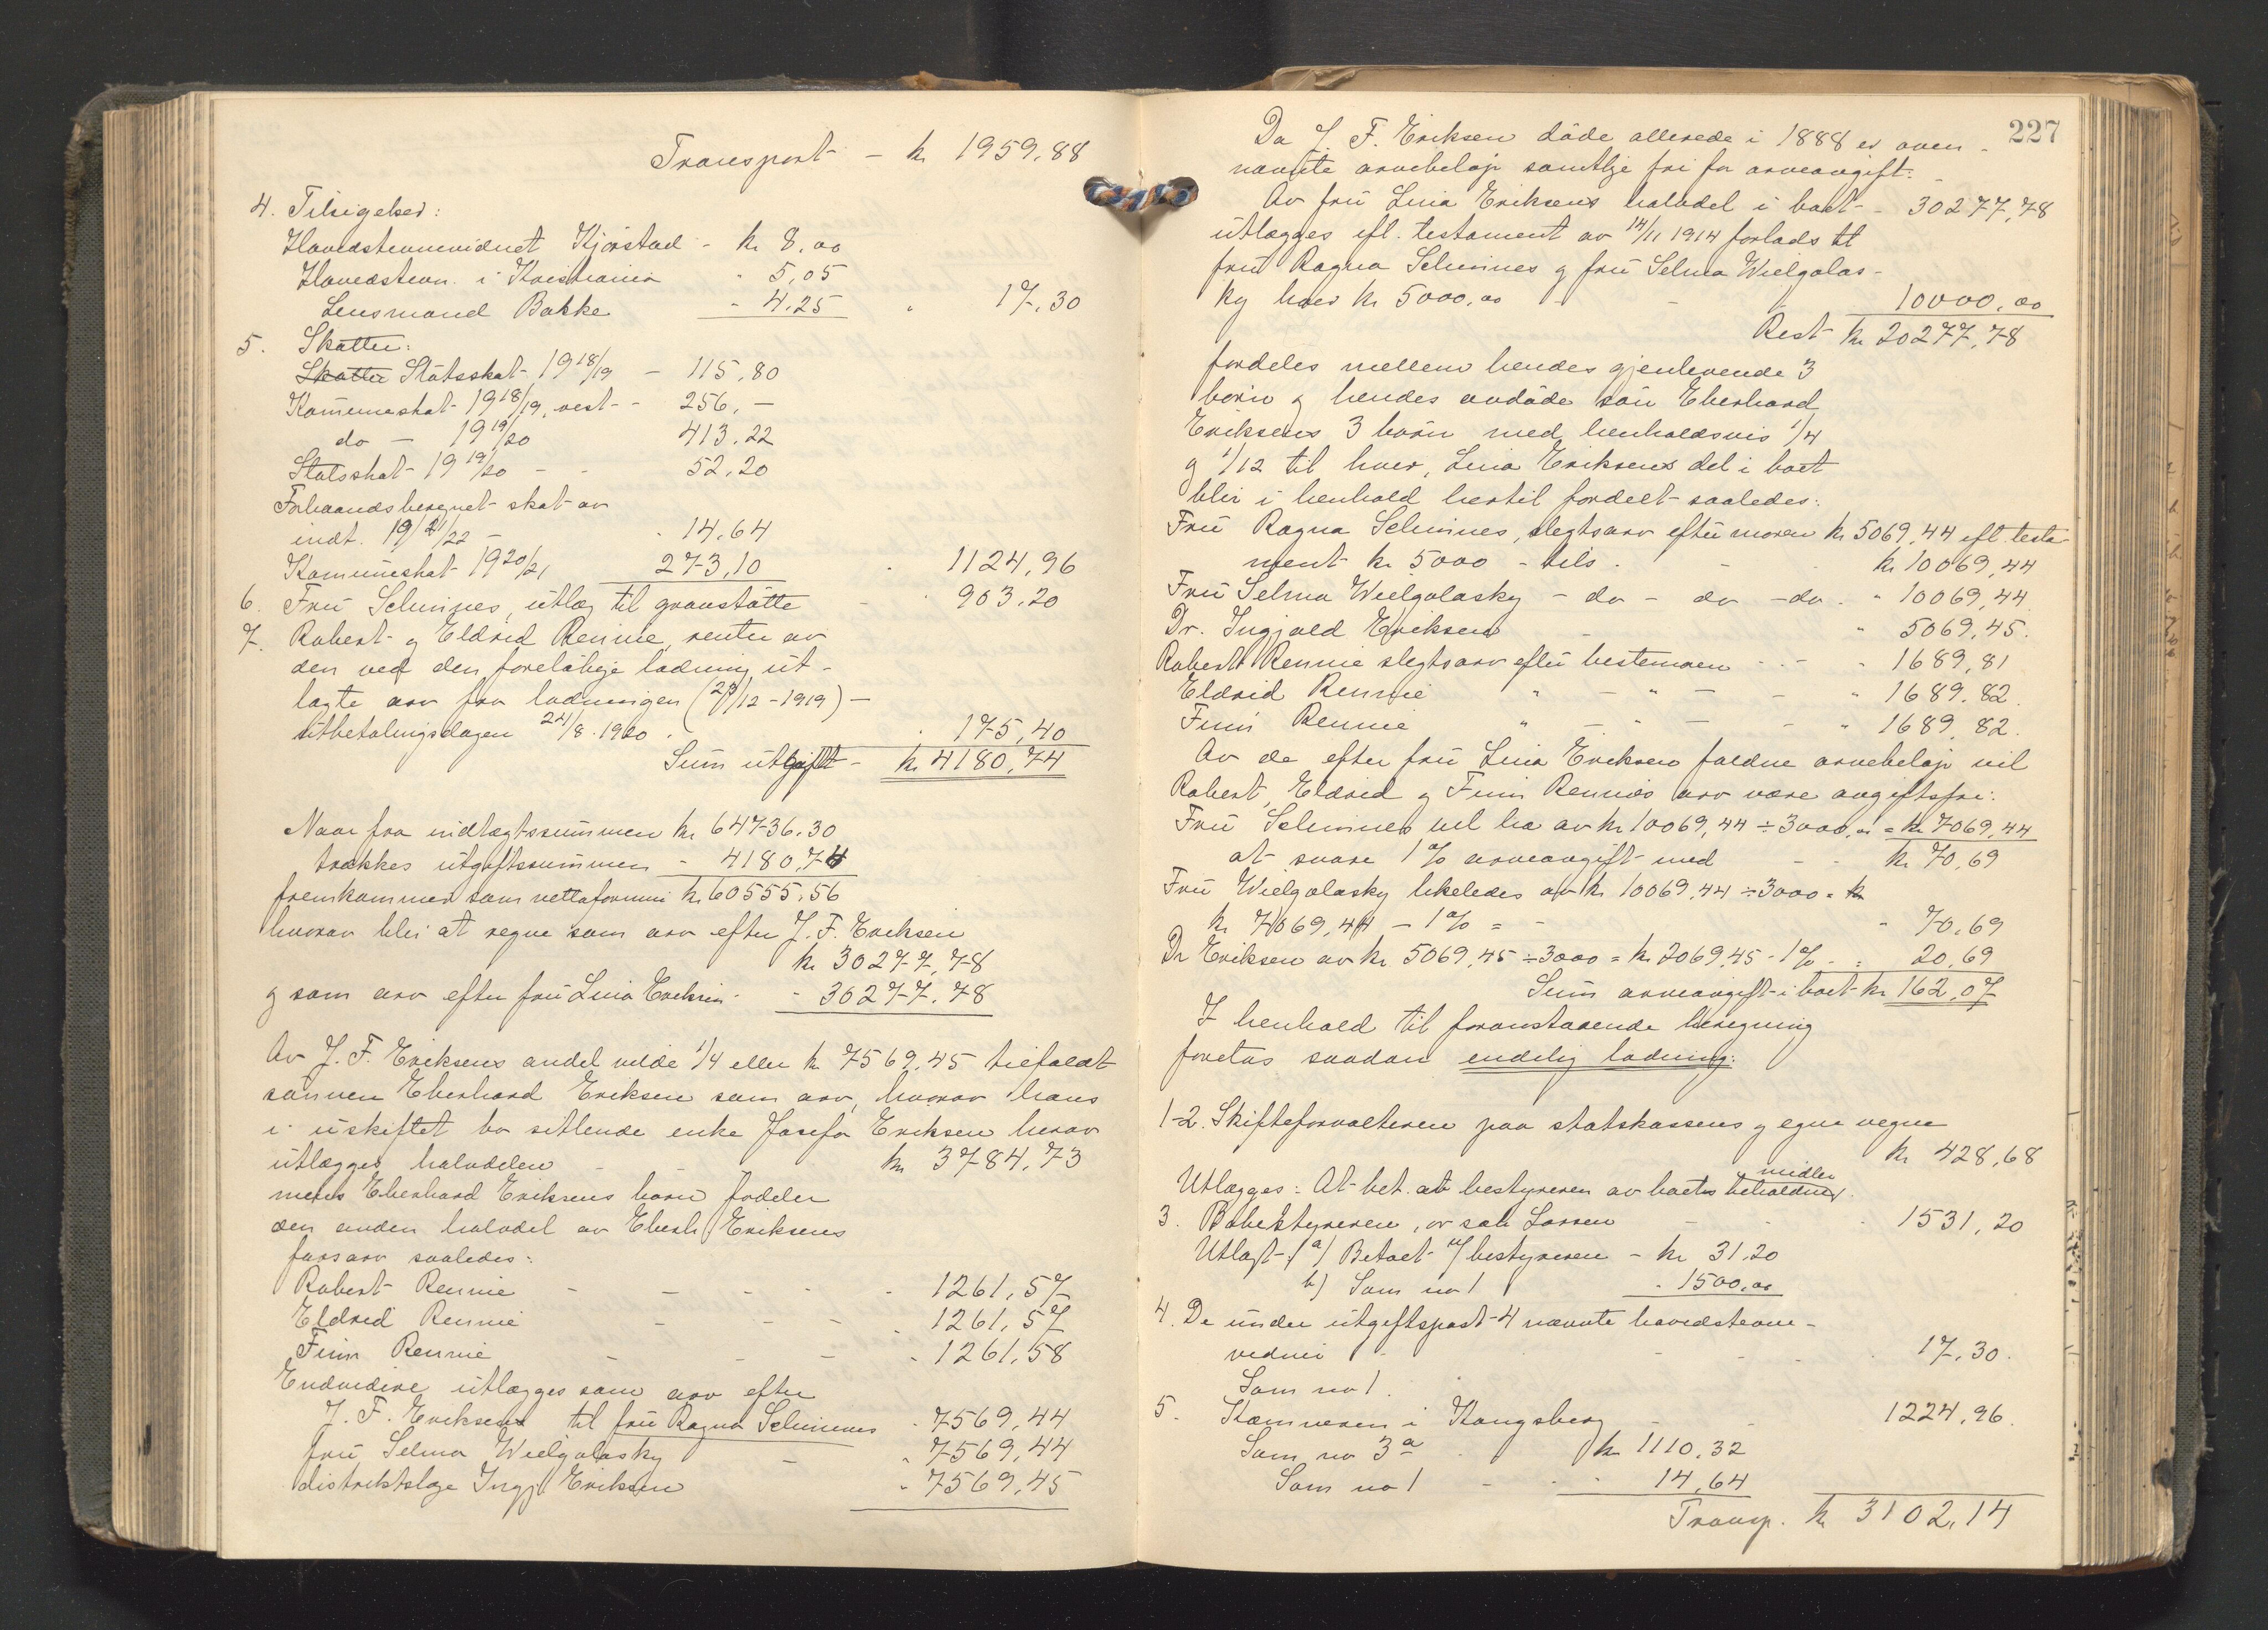 Transport - kr 1959,88
4. Tilsigelser:
Hovedstevnevidnet Kjørstad - kr 8,00
Hovedstevn. i Kristiania " 5,05
Lensmand Bakke - 4,25 " 17,30
5. Skatter:
Skatter Statsskat 1918/19 - 115,80
Komuneskat 1918/19, rest - 256,-
do - 1919/20 413,22
Statsskat 1919/20 - - 52,20
Forhaandsberegnet skat av
indt. 1921/22 - " 14,64
Komuneskat 1920/21 273,10 " 1124,96
6. Fru Selmnes, utlæg til gravstøtte - " 903,20
7. Robert og Eldrid Rennie, renter av
den ved den foreløbige lodning ut-
lagte arv fra lodningen (29/12-1919) -
utbetalingsdagen 24/8 1920. " 175,40
Sum utgift - kr 4180,74
Naar fra indtægtssummen kr 64736,30
trækkes utgiftssummen - 4180,74
fremkommer som nettoformue kr 60555,56
hvorav blir at regne som arv efter J. F. Eriksen
kr 30277,78
og som arv efter fru Lina Eriksen - - 30277,78
Av J. F. Eriksens andel vilde 1/4 eller kr 7569,45 tilfaldt
sønnen Eberhard Eriksen som arv, hvorav hans
i uskiftet bo sittende enke Josefa Eriksen herav
utlægges halvdelen - - kr 3784,73
mens Eberhard Eriksens barn fordeler
den anden halvdel av Eberh. Eriksens
farsarv saaledes:
Robert Rennie - - - - 1261,57
Eldrid Rennie - - - - 1261,57
Finn Rennie - - - - 1261,58
Endvidere utlægges som arv efter
J. F. Eriksen til fru Ragna Selmnes - 7569,44
fru Selma Wielgolasky - " 7569,44
distriktslæge Ingj. Eriksen - 7569,45
227
Da J. F. Eriksen døde allerede i 1888 er oven-
nævnte arvebeløp samtlige fri for arveavgift.
Av fru Lina Eriksens halvdel i boet - 30277,78
utlægges ifl. testament av 14/11 1914 forlods til
fru Ragna Selmnes og fru Selma Wielgolas-
ky hver kr 5000,00 - - - 10000,00
Rest kr 20277,78
fordeles mellem hendes gjenlevende 3
børn og hendes avdøde søn Eberhard
Eriksens 3 børn med henholdsvis 1/4
og 1/12 til hver, Lina Eriksens del i boet
blir i henhold hertil fordelt saaledes:
Fru Ragna Selmnes, slegtsarv efter moren kr 5069,44 ifl. testa-
ment kr 5000 - tils. - kr 10069,44
Fru Selma Wielgolasky - do - do - do - " 10069,44
Dr. Ingjald Eriksen - " 5069,45.
Robert Rennie slegtsarv efter bestemoren - - - " 1689,81
Eldrid Rennie " - " - - " 1689,82.
Finn Rennie " - " - - " 1689,82.
Av de efter fru Lina Eriksen faldne arvebeløp vil
Robert, Eldrid og Finn Rennies arv være avgiftsfri.
Fru Selmnes vil ha av kr 10069,44 ÷ 3000,00 = kr 7069,44
at svare 1% arveavgift med - - kr 70,69
Fru Wielgolasky likeledes av kr 10069,44 ÷ 3000 = kr
kr 7069,44 - 1% = - " 70,69
Dr Eriksen av kr 5069,45 ÷ 3000 = kr 2069,45 - 1% - = 20,69
Sum arveavgift i boet kr 162,07
I henhold til foranstaaende beregning
foretas saadan endelig lodning:
1-2. Skifteforvalteren paa statskassens og egne vegne
kr 428,68
midler
Utlægges: At bet. av bestyreren av boets beholdning.
3. Bobestyreren, or. sakf. Larsen - - - 1531,20
Utlagt: a) Betalt bestyreren - kr 31,20
b) Som no 1 - 1500,00
4. De under utgiftspost 4 nævnte hovedstevne-
vidner - - - - 17,30.
Som no 1.
5. Kæmneren i Kongsberg - - 1224,96.
Som no 3a kr 1110,32
Som no 1 - - 14,64
Transp. kr 3102,14